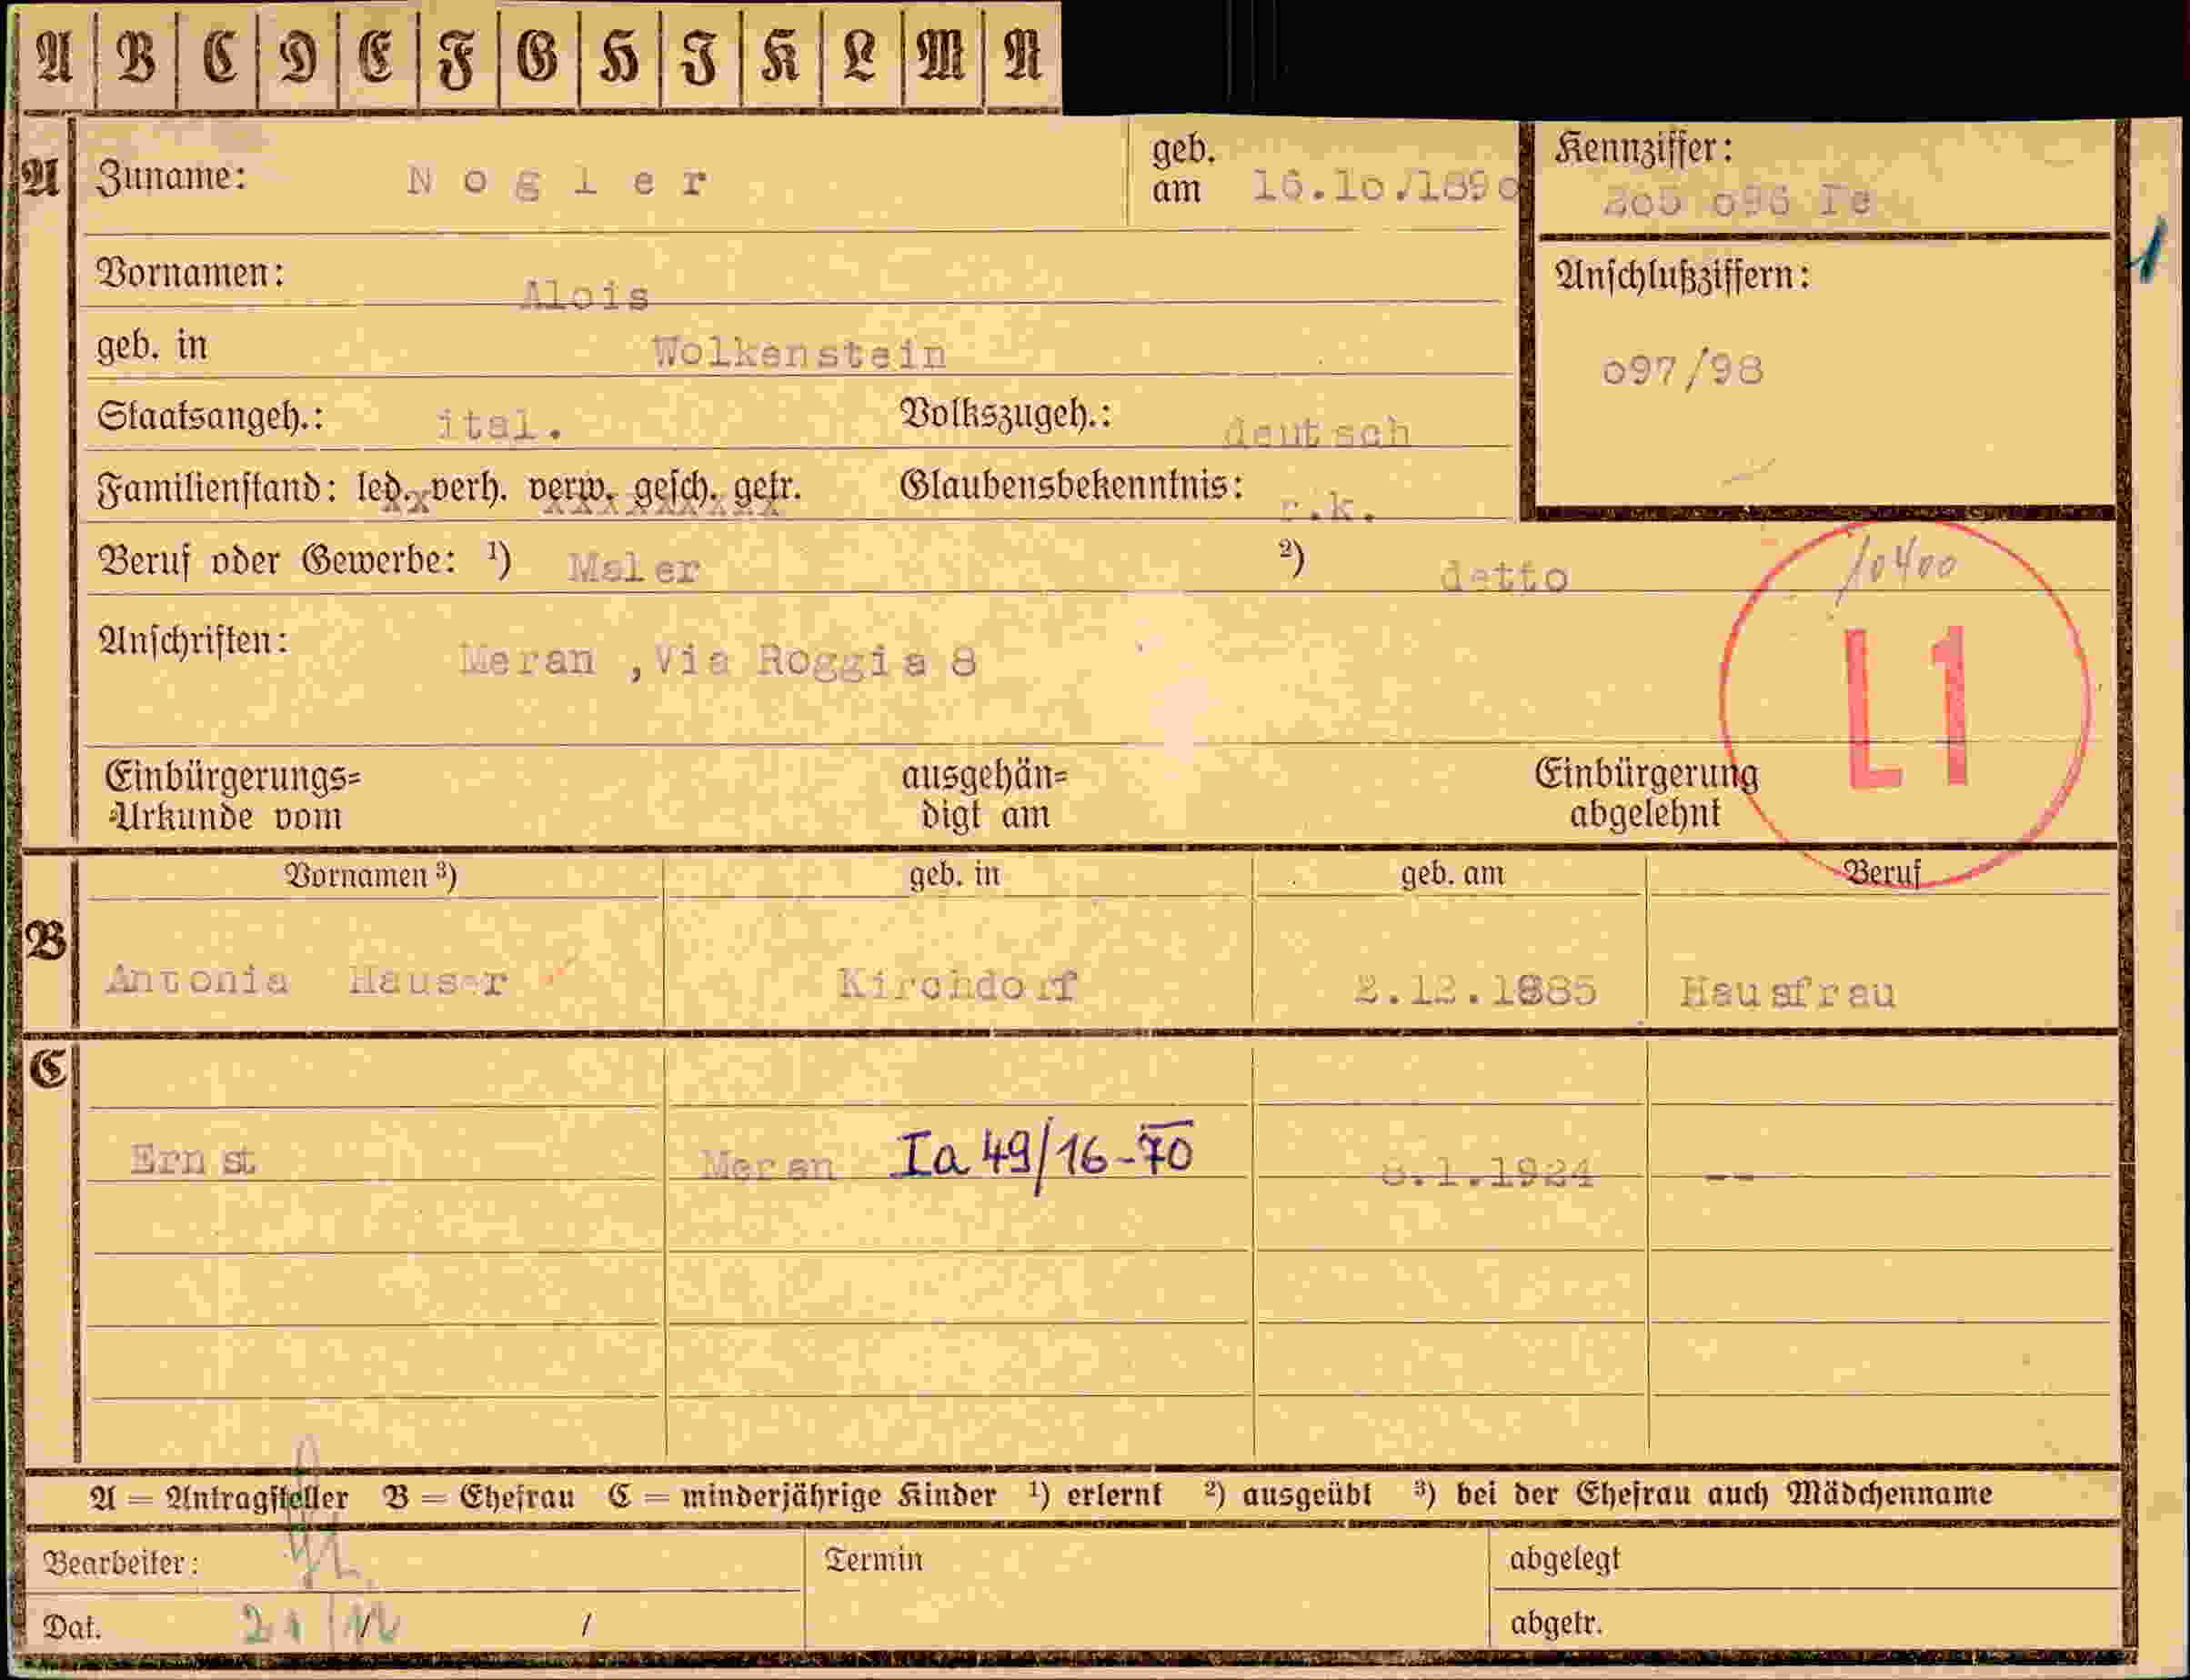 A B C D E F G H I K L M N
A Zuname: Nogler geb. am 16.10./1890
Kennziffer: 205 096 Pe
Vornamen: Alois
Anschlußziffern:
geb. in Wolkenstein
097/98
Staatsangeh.: ital. Volkszugeh.: deutsch
Familienstand: led. verh. verw. gesch. getr. Glaubensbekenntnis: r.k.
Beruf oder Gewerbe: ¹) Maler ²) detto
10400
Anschriften: Meran ,Via Roggia 8
L1
Einbürgerungs=
Urkunde vom
ausgehän=
digt am
Einbürgerung
abgelehnt
Vornamen ³) geb. in geb. am Beruf
B Antonia Hauser Kirchdorf 2.12.1885 Hausfrau
C
Ernst Meran Ia 49/16-70 8.1.1924 --
A = Antragsteller B = Ehefrau C = minderjährige Kinder ¹) erlernt ²) ausgeübt ³) bei der Ehefrau auch Mädchenname
Bearbeiter: Termin abgelegt
Dat. / / abgetr.
1